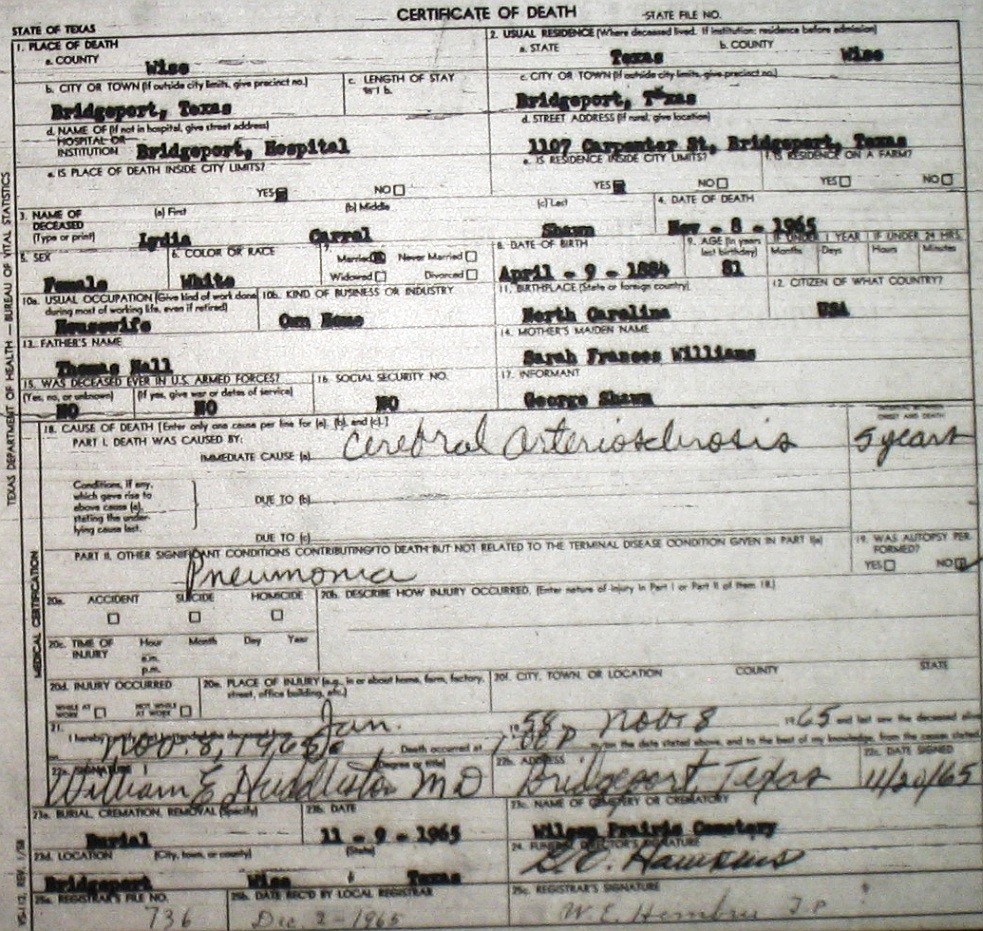 CERTIFICATE OF DEATH
STATE OF TEXAS
STATE FILE NO.
1. PLACE OF DEATH
a. COUNTY
Wise
2. USUAL RESIDENCE (Where deceased lived. If institution: residence before admission)
a. STATE
Texas
b. COUNTY
Wise
b. CITY OR TOWN (If outside city limits, give precinct no.)
Bridgeport, Texas
c. LENGTH OF STAY
c. CITY OR TOWN (If outside city limits, give precinct no.)
Bridgeport, Texas
d. NAME OF (If not in hospital, give street address)
HOSPITAL OR
INSTITUTION
Bridgeport, Hospital
d. STREET ADDRESS (If rural, give location)
1107 Carpenter St, Bridgeport, Texas
e. IS PLACE OF DEATH INSIDE CITY LIMITS?
YES NO
e. IS RESIDENCE INSIDE CITY LIMITS?
YES NO
f. IS RESIDENCE ON A FARM?
YES NO
3. NAME OF
DECEASED
(Type or print)
(a) First
(b) Middle
(c) Last
Lydia Carrol Shawn
4. DATE OF DEATH
Nov - 8 - 1965
5. SEX
Female
6. COLOR OR RACE
White
7.
Married Never Married
Widowed Divorced
8. DATE OF BIRTH
April - 9 - 1884
9. AGE (In years
last birthday)
81
IF UNDER 1 YEAR
Months Days
IF UNDER 24 HRS.
Hours Minutes
10a. USUAL OCCUPATION (Give kind of work done
during most of working life, even if retired)
Housewife
10b. KIND OF BUSINESS OR INDUSTRY
Own Home
11. BIRTHPLACE (State or foreign country)
North Carolina
12. CITIZEN OF WHAT COUNTRY?
USA
13. FATHER'S NAME
Thomas Hall
14. MOTHER'S MAIDEN NAME
Sarah Frances Williams
15. WAS DECEASED EVER IN U.S. ARMED FORCES?
(Yes, no, or unknown)
NO
(If yes, give war or dates of service)
NO
16. SOCIAL SECURITY NO.
NO
17. INFORMANT
George Shawn
18. CAUSE OF DEATH [Enter only one cause per line for (a), (b), and (c).]
PART I. DEATH WAS CAUSED BY:
IMMEDIATE CAUSE (a)
Cerebral Arteriosclerosis
ONSET AND DEATH
5 years
Conditions, if any,
which gave rise to
above cause (a),
stating the under-
lying cause last.
DUE TO (b)
DUE TO (c)
PART II. OTHER SIGNIFICANT CONDITIONS CONTRIBUTING TO DEATH BUT NOT RELATED TO THE TERMINAL DISEASE CONDITION GIVEN IN PART I(a)
Pneumonia
19. WAS AUTOPSY PER-
FORMED?
YES NO
20a. ACCIDENT SUICIDE HOMICIDE
20b. DESCRIBE HOW INJURY OCCURRED. (Enter nature of injury in Part I or Part II of Item 18.)
20c. TIME OF
INJURY
Hour Month Day Year
a.m.
p.m.
20d. INJURY OCCURRED
WHILE AT
WORK
NOT WHILE
AT WORK
20e. PLACE OF INJURY (e.g., in or about home, farm, factory,
street, office building, etc.)
20f. CITY, TOWN, OR LOCATION COUNTY STATE
21.
I hereby certify that I attended the deceased from Jan. 1958 Nov. 8 1965 and last saw the deceased alive
Nov. 8, 1965 Death occurred at on the date stated above, and to the best of my knowledge, from the causes stated.
22a. SIGNATURE
(Degree or title)
William E Huddleston MD
22b. ADDRESS
Bridgeport, Texas
22c. DATE SIGNED
11/20/65
23a. BURIAL, CREMATION, REMOVAL (Specify)
Burial
23b. DATE
11 - 9 - 1965
23c. NAME OF CEMETERY OR CREMATORY
Wilson Prairie Cemetery
23d. LOCATION (City, town, or county) (State)
Bridgeport Wise Texas
24. FUNERAL DIRECTOR'S SIGNATURE
Hawkins
25a. REGISTRAR'S FILE NO.
736
25b. DATE REC'D BY LOCAL REGISTRAR
Dec 2 - 1965
25c. REGISTRAR'S SIGNATURE
W. E. J.P
TEXAS DEPARTMENT OF HEALTH — BUREAU OF VITAL STATISTICS
MEDICAL CERTIFICATION
VS-112, REV. 1/58